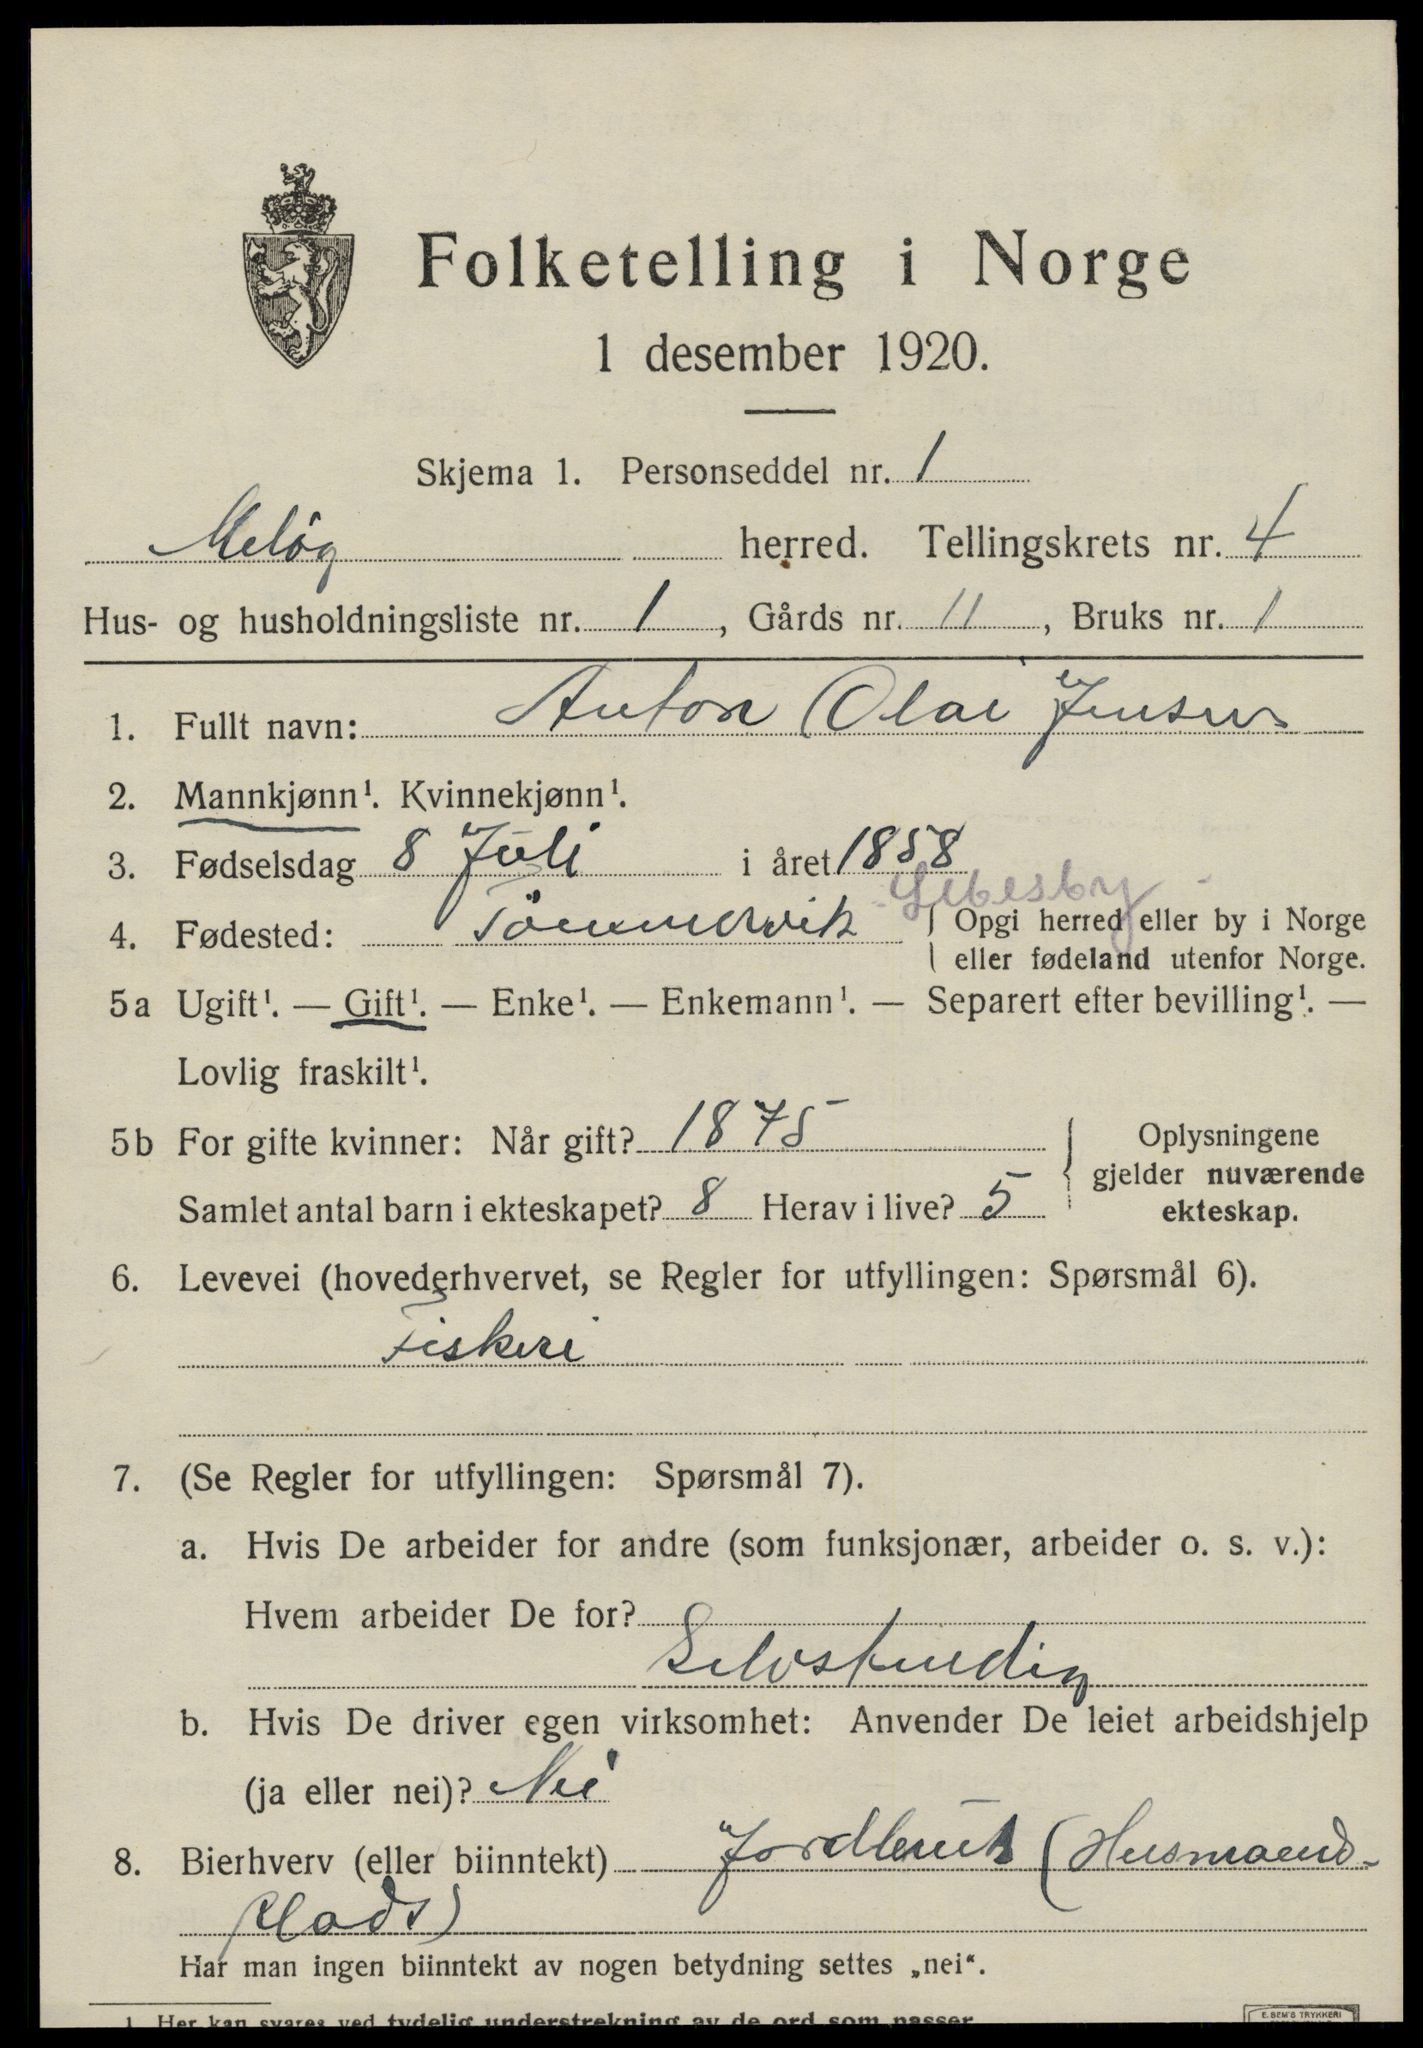 Folketelling i Norge
1 desember 1920.
Skjema 1. Personseddel nr. 1
Meløy herred. Tellingskrets nr. 4
Hus- og husholdningsliste nr. 1, Gårds nr. 11, Bruks nr. 1
1. Fullt navn: Anton Olai Jensen
2. Mannkjønn¹. Kvinnekjønn¹.
3. Fødselsdag 8 Juli i året 1858
Lebesby
4. Fødested: Tömmervik { Opgi herred eller by i Norge
eller fødeland utenfor Norge.
5a Ugift¹. — Gift¹. — Enke¹. — Enkemann¹. — Separert efter bevilling¹. —
Lovlig fraskilt¹.
5b For gifte kvinner: Når gift? 1875 { Oplysningene
gjelder nuværende
Samlet antal barn i ekteskapet? 8 Herav i live? 5 ekteskap.
6. Levevei (hovederhvervet, se Regler for utfyllingen: Spørsmål 6).
Fiskeri
7. (Se Regler for utfyllingen: Spørsmål 7).
a. Hvis De arbeider for andre (som funksjonær, arbeider o. s. v.):
Hvem arbeider De for?
Selvstendig
b. Hvis De driver egen virksomhet: Anvender De leiet arbeidshjelp
(ja eller nei)? Nei
8. Bierhverv (eller biinntekt) Jordbruk (Husmands-
plads)
Har man ingen biinntekt av nogen betydning settes „nei“.
1. Her kan svares ved tydelig understrekning av de ord som passer
E. SEM'S TRYKKERI